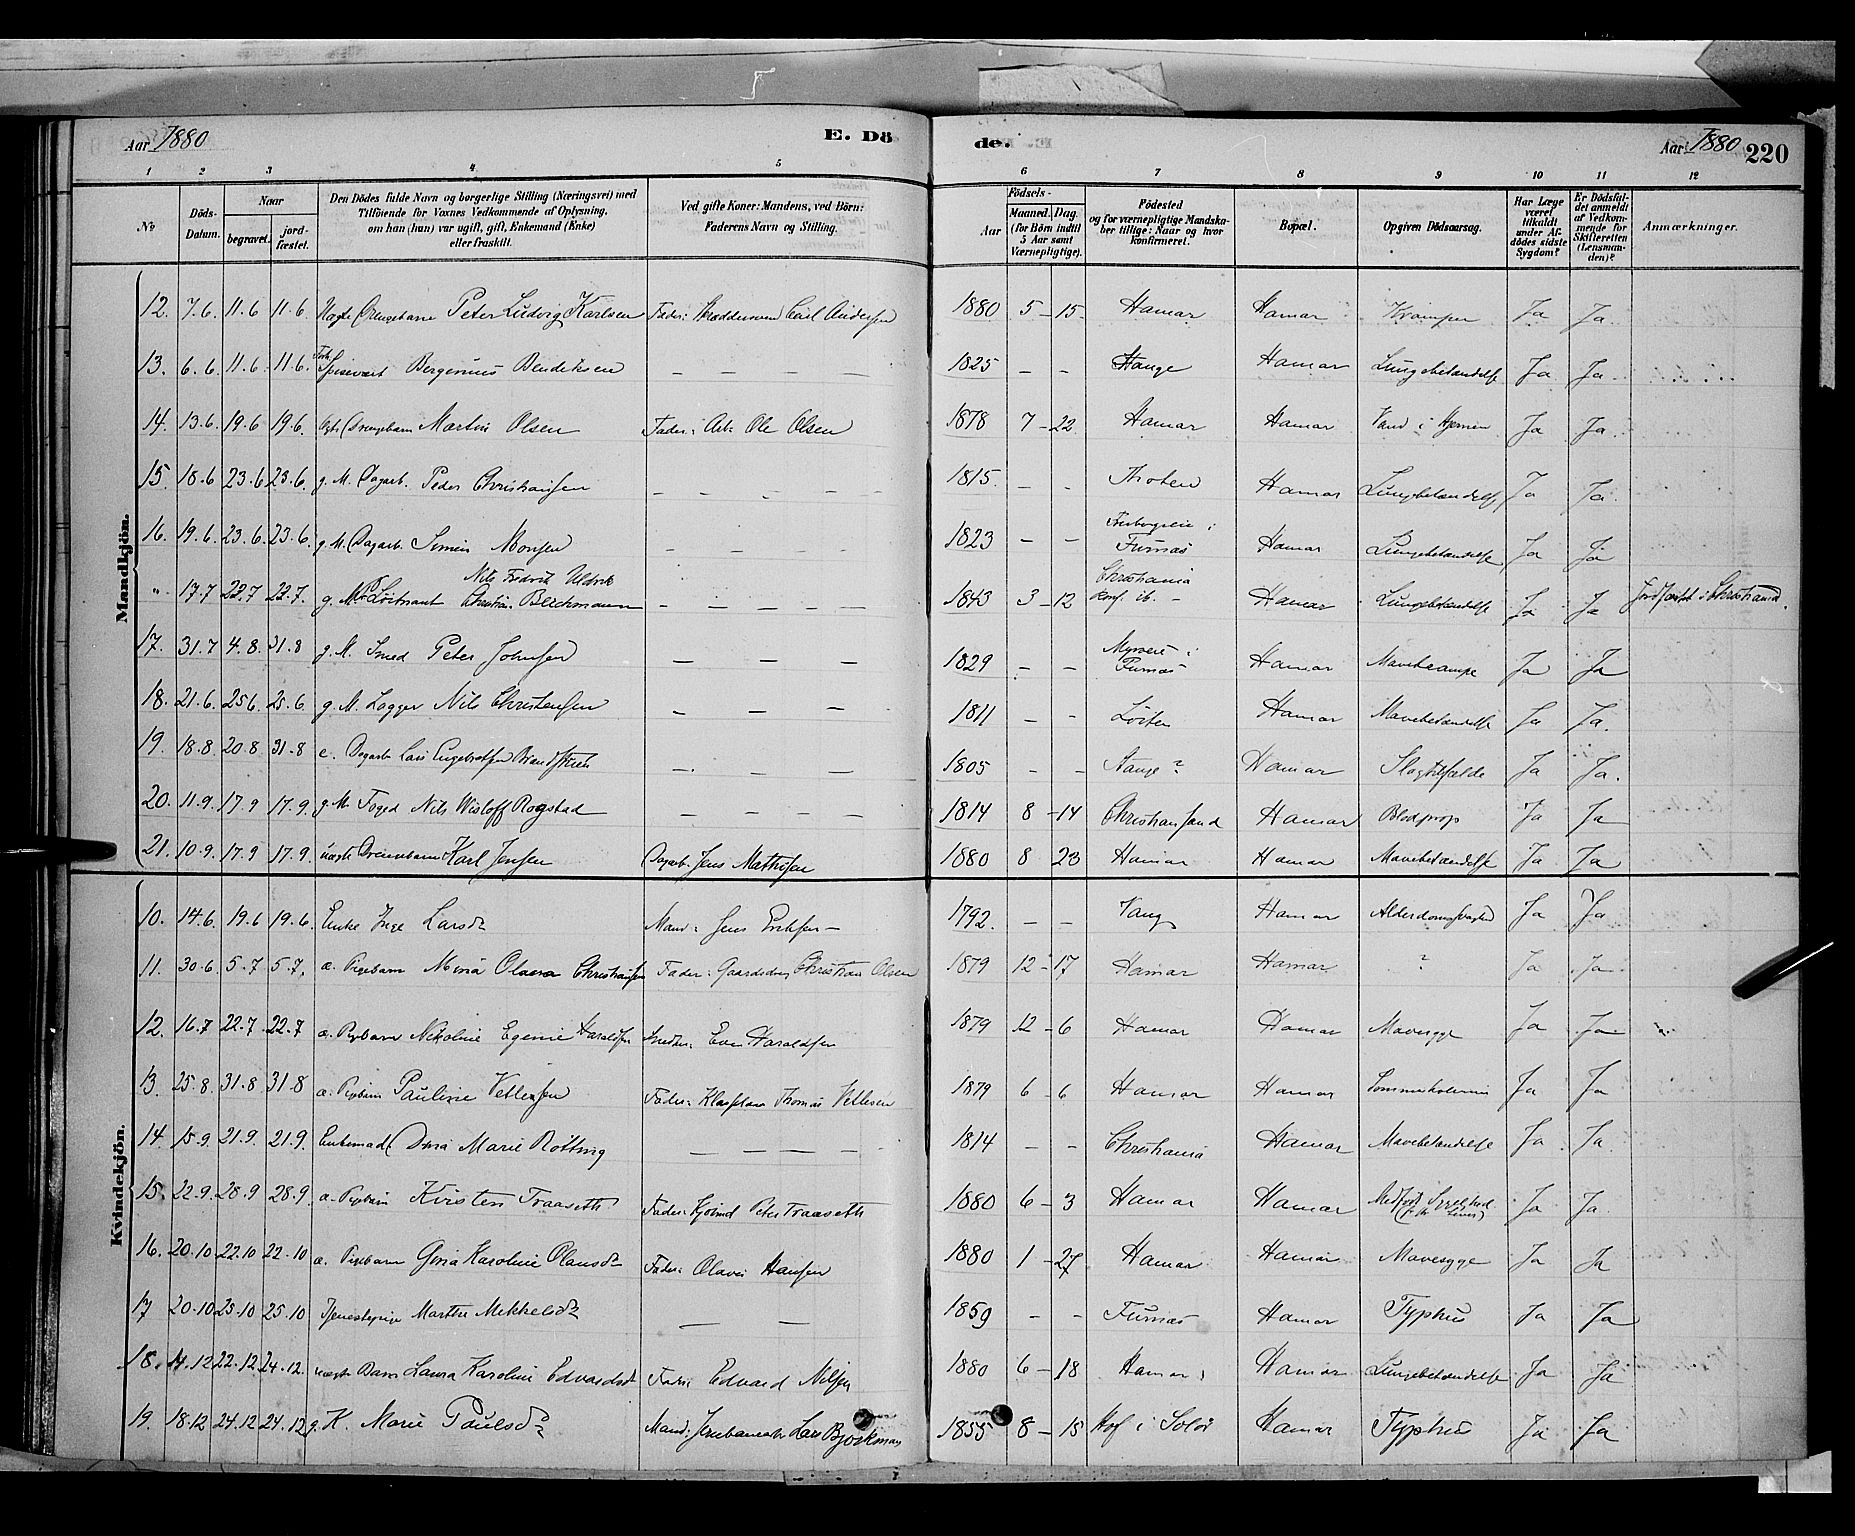 Aar 1880 E. Dö
de. Aar 1880 220
1 2 3 4 5 6 7 8 9 10 11 12
№
Döds-Datum.
Naar
begravet.
jord-fæstet.
Den Dödes fulde Navn og borgerlige Stilling (Næringsvei) med
Tilföiende for Voxnes Vedkommende af Oplysning,
om han (hun) var ugift, gift, Enkemand (Enke)
eller fraskilt.
Ved gifte Koner: Mandens, ved Börn:
Faderens Navn og Stilling.
Födsels-
Aar
Maaned. Dag.
(for Börn indtil
5 Aar samt
Værnepligtige).
Födested
og for værnepligtige Mandska-
ber tillige: Naar og hvor
konfirmeret.
Bopæl.
Opgiven Dödsaarsag.
Har Læge
været
tilkaldt
under Af-
dödes sidste
Sygdom?
Er Dödsfal-
det anmeldt
af Vedkom-
mende for
Skifteretten
(Lensman-
den)?
Anmærkninger.
Mandkjön.
12. 7.6. 11.6 11.6. Drengebarn Peter Ludvig Karlsen Fader: Carl Andersen 1880 5 - 15 Hamar Hamar Kramper Ja Ja
13. 6.6. 11.6 11.6. Spisevært Bergenius Bendiksen — — — — 1825 — — Stange Hamar Lungebetændelse Ja Ja
14. 13.6. 19.6 19.6. Drengebarn Martin Olsen Fader: Arb. Ole Olsen 1878 7 - 22 Hamar Hamar Vand i Hjernen Ja Ja
15. 18.6 23.6 23.6. g. M. Dagarb. Peder Christiansen — — — — 1815. — — Thoten Hamar Lungebetændelse Ja Ja
16. 19.6. 23.6. 23.6. g. M. Dagarb. Simen Monsen — — — — 1823 — — i Furnæs Hamar Lungebetændelse Ja Ja
" 17.7 22.7 22.7. g. M. Nils Fredrik Uldrik Christian Bleckmann — — — — 1843 3 - 12 Christiania konf. ib. Hamar Lungebetændelse Ja Ja Jordfæstet i Christiania.
17. 31.7 4.8. 31.8 g. M. Smed Peter Johnsen — — — 1829 — — i Furnæs Hamar Mavekrampe Ja Ja
18. 21.6. 25.6. 25.6. g. M. Logger Nils Christensen — — — 1811 — — Löiten Hamar Mavebetændelse Ja Ja.
19. 18.8. 20.8. 31.8 e. Dagarb. Lars Engebretsen — — — 1805 — — Stange? Hamar Slagtilfælde Ja Ja.
20. 11.9. 17.9 17.9. g. M. Foged Nils Wisloff Rogstad — — — 1814 8 - 14 Christiansand Hamar Blodprop Ja Ja
21. 10.9. 17.9 17.9. uægte Drengebarn Karl Jensen Dagarb. Jens Mathisen 1880 8 - 23 Hamar Hamar Mavebetændelse Ja Ja
Kvindekjön.
10. 14.6. 19.6 19.6. Enke Inge Larsdr Mand: Jens Eriksen — 1792. — — Vang Hamar Alderdomssvaghed Ja Ja
11. 30.6. 5.7 5.7. æ. Pigebarn Olava Christiansen Fader: Christian Olsen 1879 12 - 17 Hamar Hamar ? Ja Ja
12. 16.7 22.7 22.7 æ. Pigebarn Nikoline Egenie Haraldsen Even Haraldsen 1879 12 - 6 Hamar Hamar Mavesyge Ja Ja
13. 25.8. 31.8 31.8 æ. Pigebarn Pauline Vettesen Fader: Thomas Vettesen 1879 6 - 6 Hamar Hamar Ja Ja
14. 15.9. 21.9. 21.9. Marie Rötting — — — — 1814 — — Christiania Hamar Mavebetændelse Ja Ja.
15. 22.9. 28.9 28.9. æ. Pigebarn Kirsten Traaseth Fader: Kjöbmd Peter Traaseth 1880 6 - 3 Hamar Hamar Ja Ja.
16. 20.10 22.10 22.10 æ. Pigebarn Karoline Olausdr Fader: Olaves Hansen 1880 1 - 27 Hamar Hamar Mavesyge Ja Ja
17 20.10 25.10 25.10 Tjenestepige Marthe Mikkelsdr — — 1859 — — Furnæs Hamar Typhus Ja Ja
18. 14.12 22.12. 24.12. uægte Barn Laura Karoline Edvardsdr Fader Edvard Nilsen 1880 6 - 18 Hamar Hamar Lungebetændelse Ja Ja
19. 18.12 24.12 24.12 g. K. Marie Paulsdr Mand: Lars Bjorkman 1855 8 - 15 Hof i Solör Hamar Typhus Ja Ja